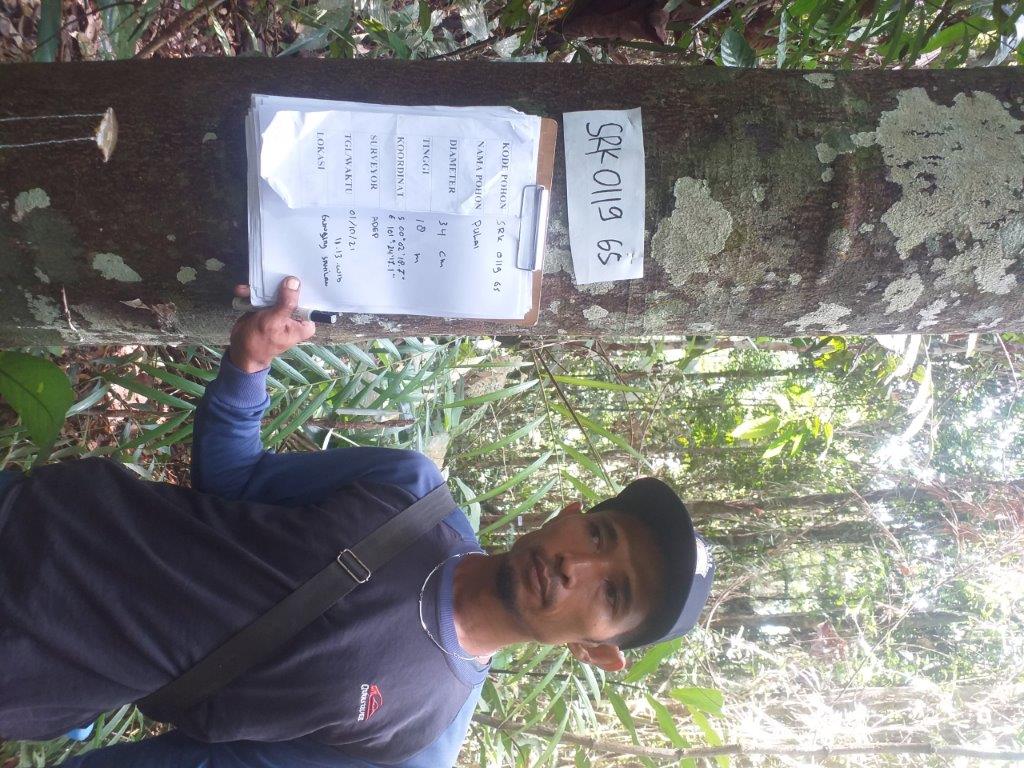 SRK 0119 65
KODE POHON SRK 0119 65
NAMA POHON Pulai
DIAMETER 34 cm
TINGGI 18 m
KOORDINAT S 00°02'18.7"
E 101°24'17.1"
SURVEYOR ADEP
TGL/WAKTU 01/10/21
11.13 WIB
LOKASI Gunung Sahilan